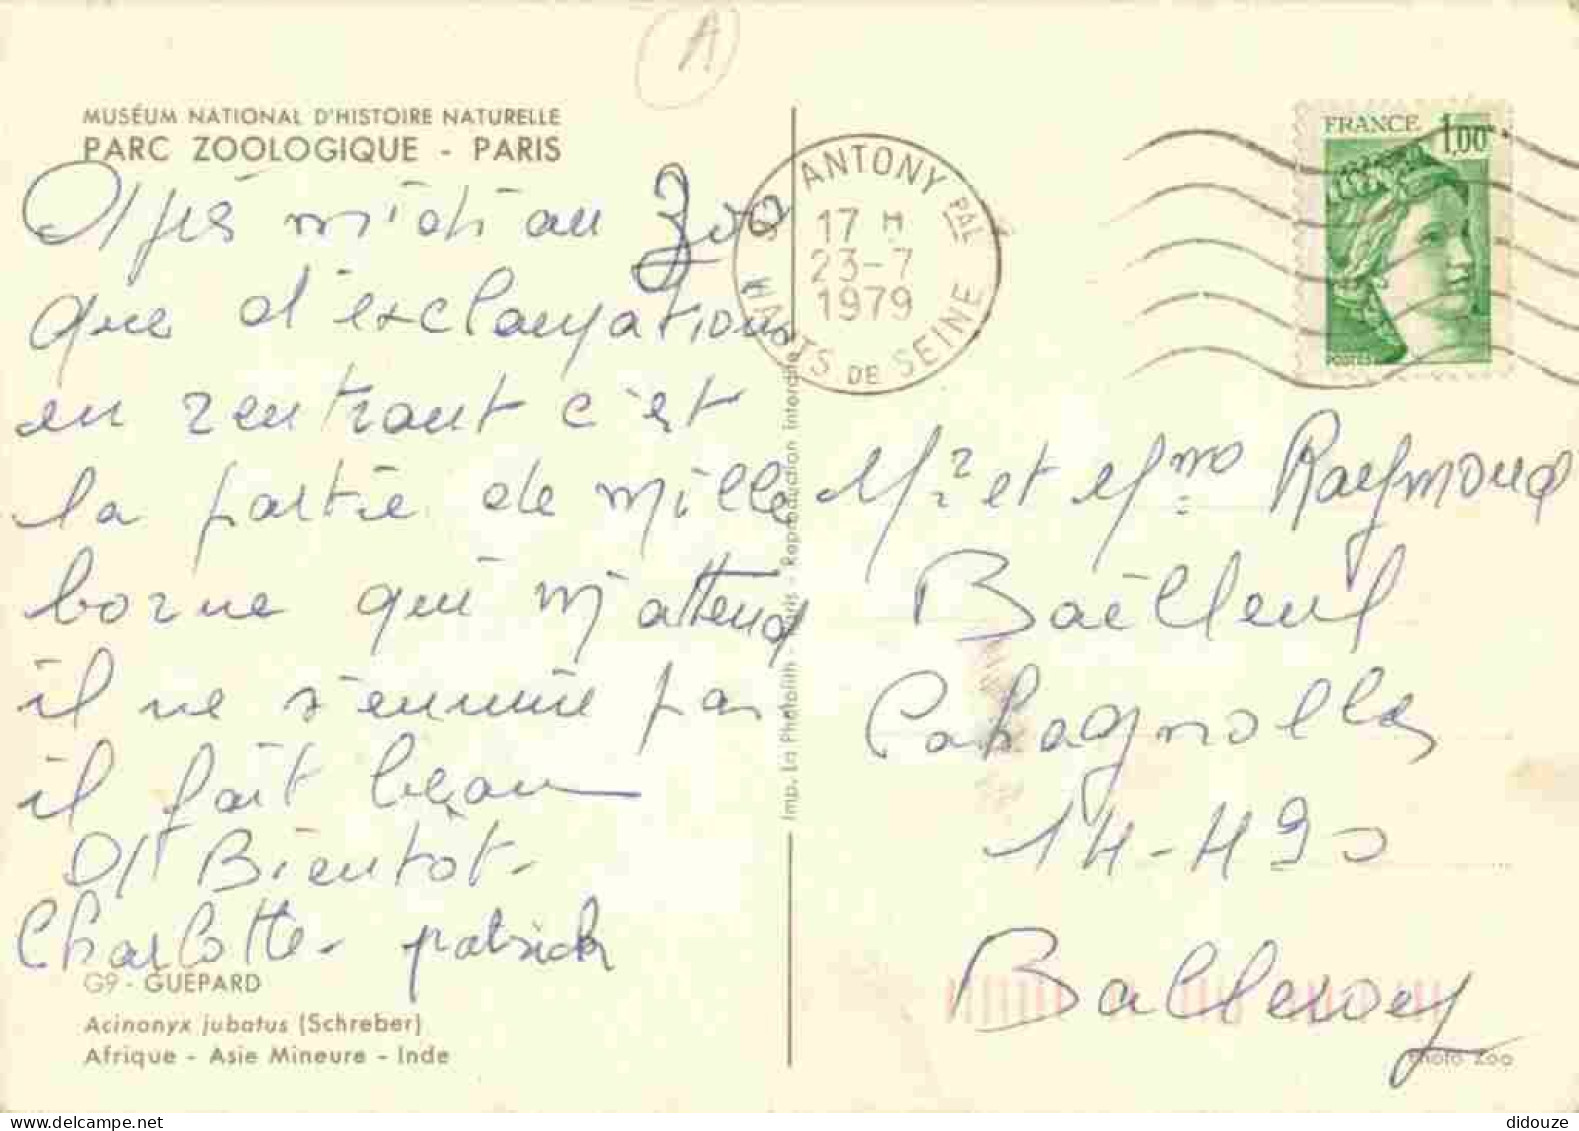 A
MUSÉUM NATIONAL D'HISTOIRE NATURELLE
PARC ZOOLOGIQUE - PARIS
Après midi au Zoo
que d'exclamations
en rentrant c'est
la partie de mille
borne qui m'attend
il ne s'ennuie pas
il fait beau
A Bientot -
Charlotte - patrick
G9 - GUÉPARD
Acinonyx jubatus (Schreber)
Afrique - Asie Mineure - Inde
Imp. La Photolith - Paris - Reproduction interdite
92 ANTONY PAL
17 H
23-7
1979
HAUTS DE SEINE
FRANCE 1,00
POSTES
Mr et Mme Raymond
Bailleul
Cahagnolles
14-490
Balleroy
Photo Zoo
didouze